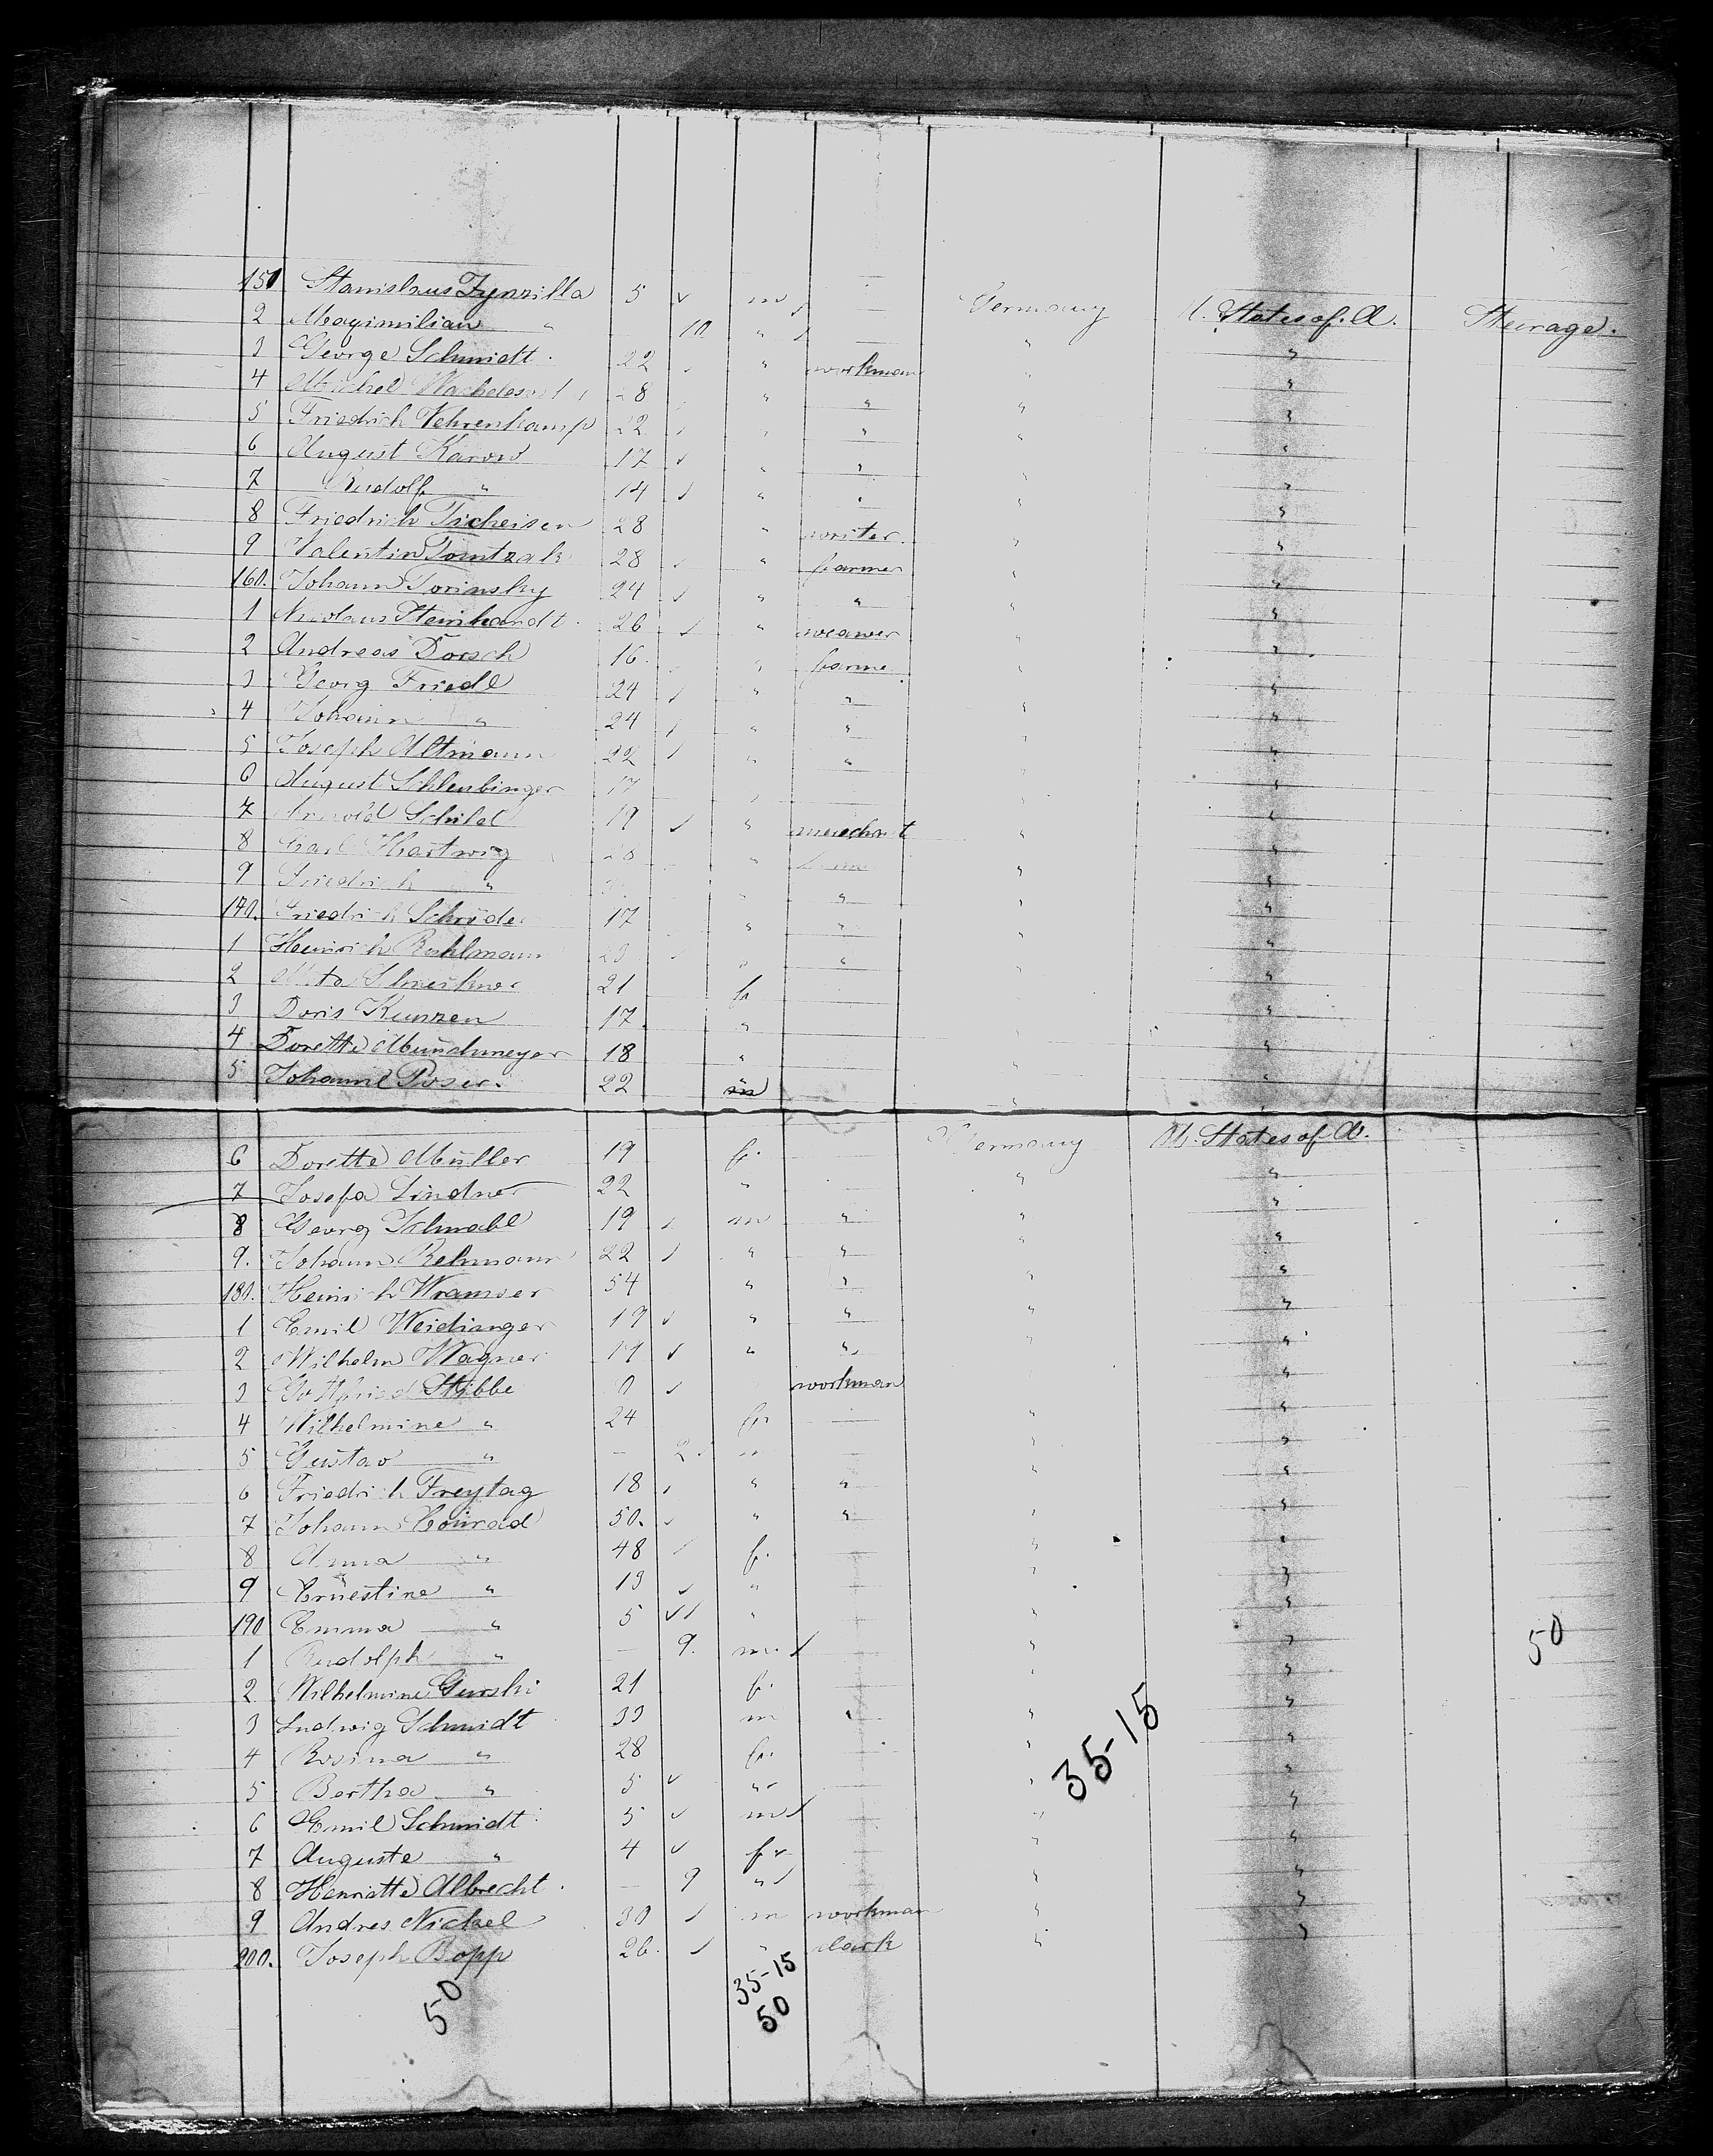 151 Stanislaus Tynzilla 5 m Germany U. States of A. Steerage.
2 Maximilian " 10 " "
3 George Schmidt. 22 " workman " "
4 Michel 28 " " " "
5 Friedrich Vehrenkamp 22 " " " "
6 August Karow 17 " " " "
7 Rudolf " 14 " " " "
8 Friedrich Ticheisen 28 " writer. " "
9 Valentin Tomtzak 28 " farmer " "
160. Johann Torinsky 24 " " " "
1 Nicolaus Steinhardt. 26 " weawer " "
2 Andreas Dorsch 16. " farme " "
3 Georg Friedl 24 " " " "
4 Johann " 24 " " " "
5 Joseph Altmann 22 " " " "
6 August Schleubinger 17 " "
7 Arnold Schild 19 " merchnt " "
8 Carl Hartwig 28 " "
9 Friedrich " " " " "
170. Friedrich Schröder 17 " " " "
1 Heinrich Ruhlmann 23 " " "
2 21 f " "
3 Doris Kunzen 17. " "
4 Dorette Münchmeyer 18 " " "
5 Johanne Poser. 22 m " "
6 Dorette Müller 19 f. Germany U. States of A.
7 Josefa Lindner 22 " " "
8 Georg Schwabl 19 m " " "
9. Johann Rehmann 22 " " " "
180. Heinrich Wramser 54 " " " "
1 Emil Weidinger 19 " " " "
2 Wilhelm Wagner 19 " " " "
3 Gottfried Stibbe workman "
4 Wilhelmine " 24 f. " "
5 Gustav " — 2. m " "
6 Friedrich Freytag 18 " " " "
7 Johann Conrad 50. " " " "
8 Anna " 48 f. " "
9 Ernestine " 19 " " "
190 Emma " 5 " " "
1 Rudolph " — 9. m " "
50
2 Wilhelmine Gurski 21 f. " "
3 Ludwig Schmidt 33 m " " "
4 Rosina " 28 f. " "
35-15
5 Bertha " 5 " " "
6 Emil Schmidt 5 m " "
7 Auguste " 4 f " "
8 Henriette Albrecht. — 9 " " "
9 Andres Nickel 30 m workman " "
200. Joseph Bopp 26. " clark " "
35-15
50 50